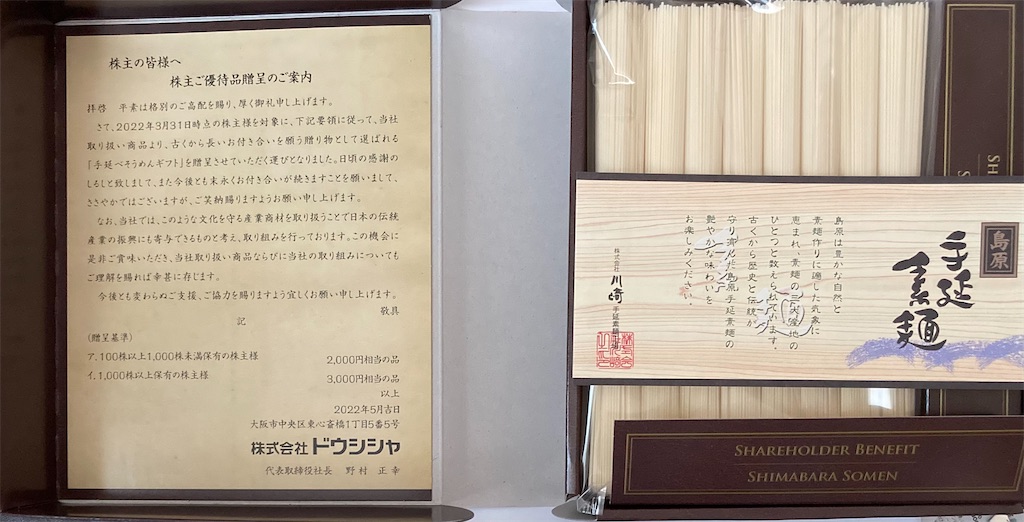 株主の皆様へ
株主ご優待品贈呈のご案内
拝啓　平素は格別のご高配を賜り、厚く御礼申し上げます。
さて、2022年3月31日時点の株主様を対象に、下記要領に従って、当社
取り扱い商品より、古くから長いお付き合いを願う贈り物として選ばれる
「手延べそうめんギフト」を贈呈させていただく運びとなりました。日頃の感謝の
しるしと致しまして、また今後とも末永くお付き合いが続きますことを願いまして、
ささやかではございますが、ご笑納賜りますようお願い申し上げます。
なお、当社では、このような文化を守る産業商材を取り扱うことで日本の伝統
産業の振興にも寄与できるものと考え、取り組みを行っております。この機会に
是非ご賞味いただき、当社取り扱い商品ならびに当社の取り組みについても
ご理解を賜れば幸甚に存じます。
今後とも変わらぬご支援、ご協力を賜りますよう宜しくお願い申し上げます。
敬具
記
(贈呈基準)
ア.100株以上1,000株未満保有の株主様　2,000円相当の品
イ.1,000株以上保有の株主様　3,000円相当の品
以上
2022年5月吉日
大阪市中央区東心斎橋1丁目5番5号
株式会社 ドウシシャ
代表取締役社長　野村　正幸
島原
手延
素麺
島原は豊かな自然と
素麺作りに適した気象に
恵まれ、素麺の三大産地の
ひとつと数えられています。
古くから歴史と伝統が
守り済んだ島原手延素麺の
艶やかな味わいを
お楽しみください。
株式会社 川崎 手延素麺工場
SHAREHOLDER BENEFIT
SHIMABARA SOMEN